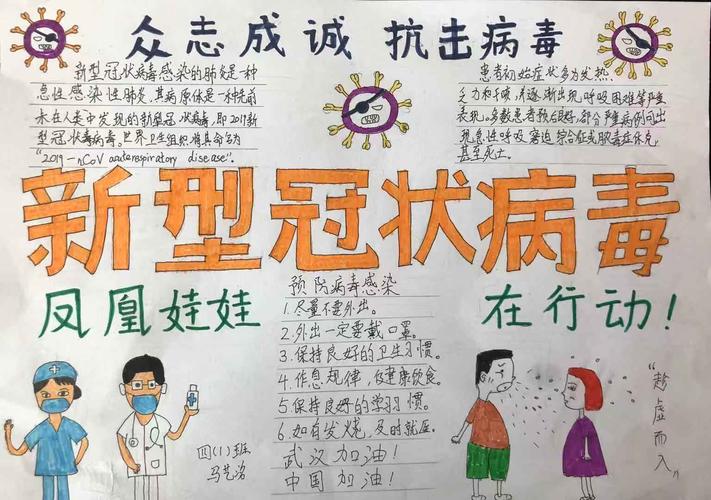 众志成诚 抗击病毒
新型冠状病毒感染的肺炎是一种
急性感染性肺炎,其病原体是一种先前
未在人类中发现的新型冠状病毒,即2019新
型冠状病毒。世界卫生组织将其命名为
"2019-nCoV disease"。
患者初始症状多为发热、
乏力和干咳,并逐渐出现呼吸困难等严重
表现。多数患者预后良好,部分严重病例可出
现急性呼吸窘迫综合征或脓毒症休克,
甚至死亡。
新型冠状病毒
凤凰娃娃
在行动!
预防病毒感染
1.尽量不要外出。
2.外出一定要戴口罩。
3.保持良好的卫生习惯。
4.作息规律,健康饮食。
5.保持良好的学习习惯。
6.如有发烧,及时就医。
武汉加油!
中国加油!
四(1)班
马艺洛
"趁虚而入"